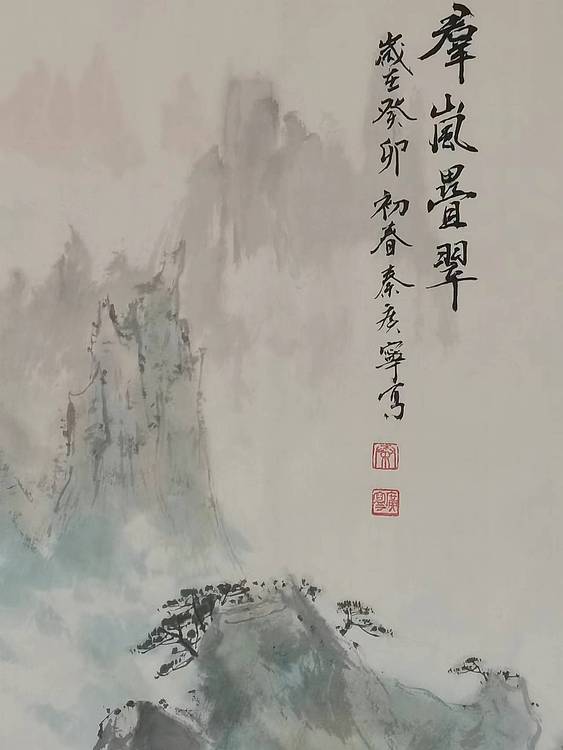 羣嵐疊翠
歲在癸卯初春秦廣寧寫